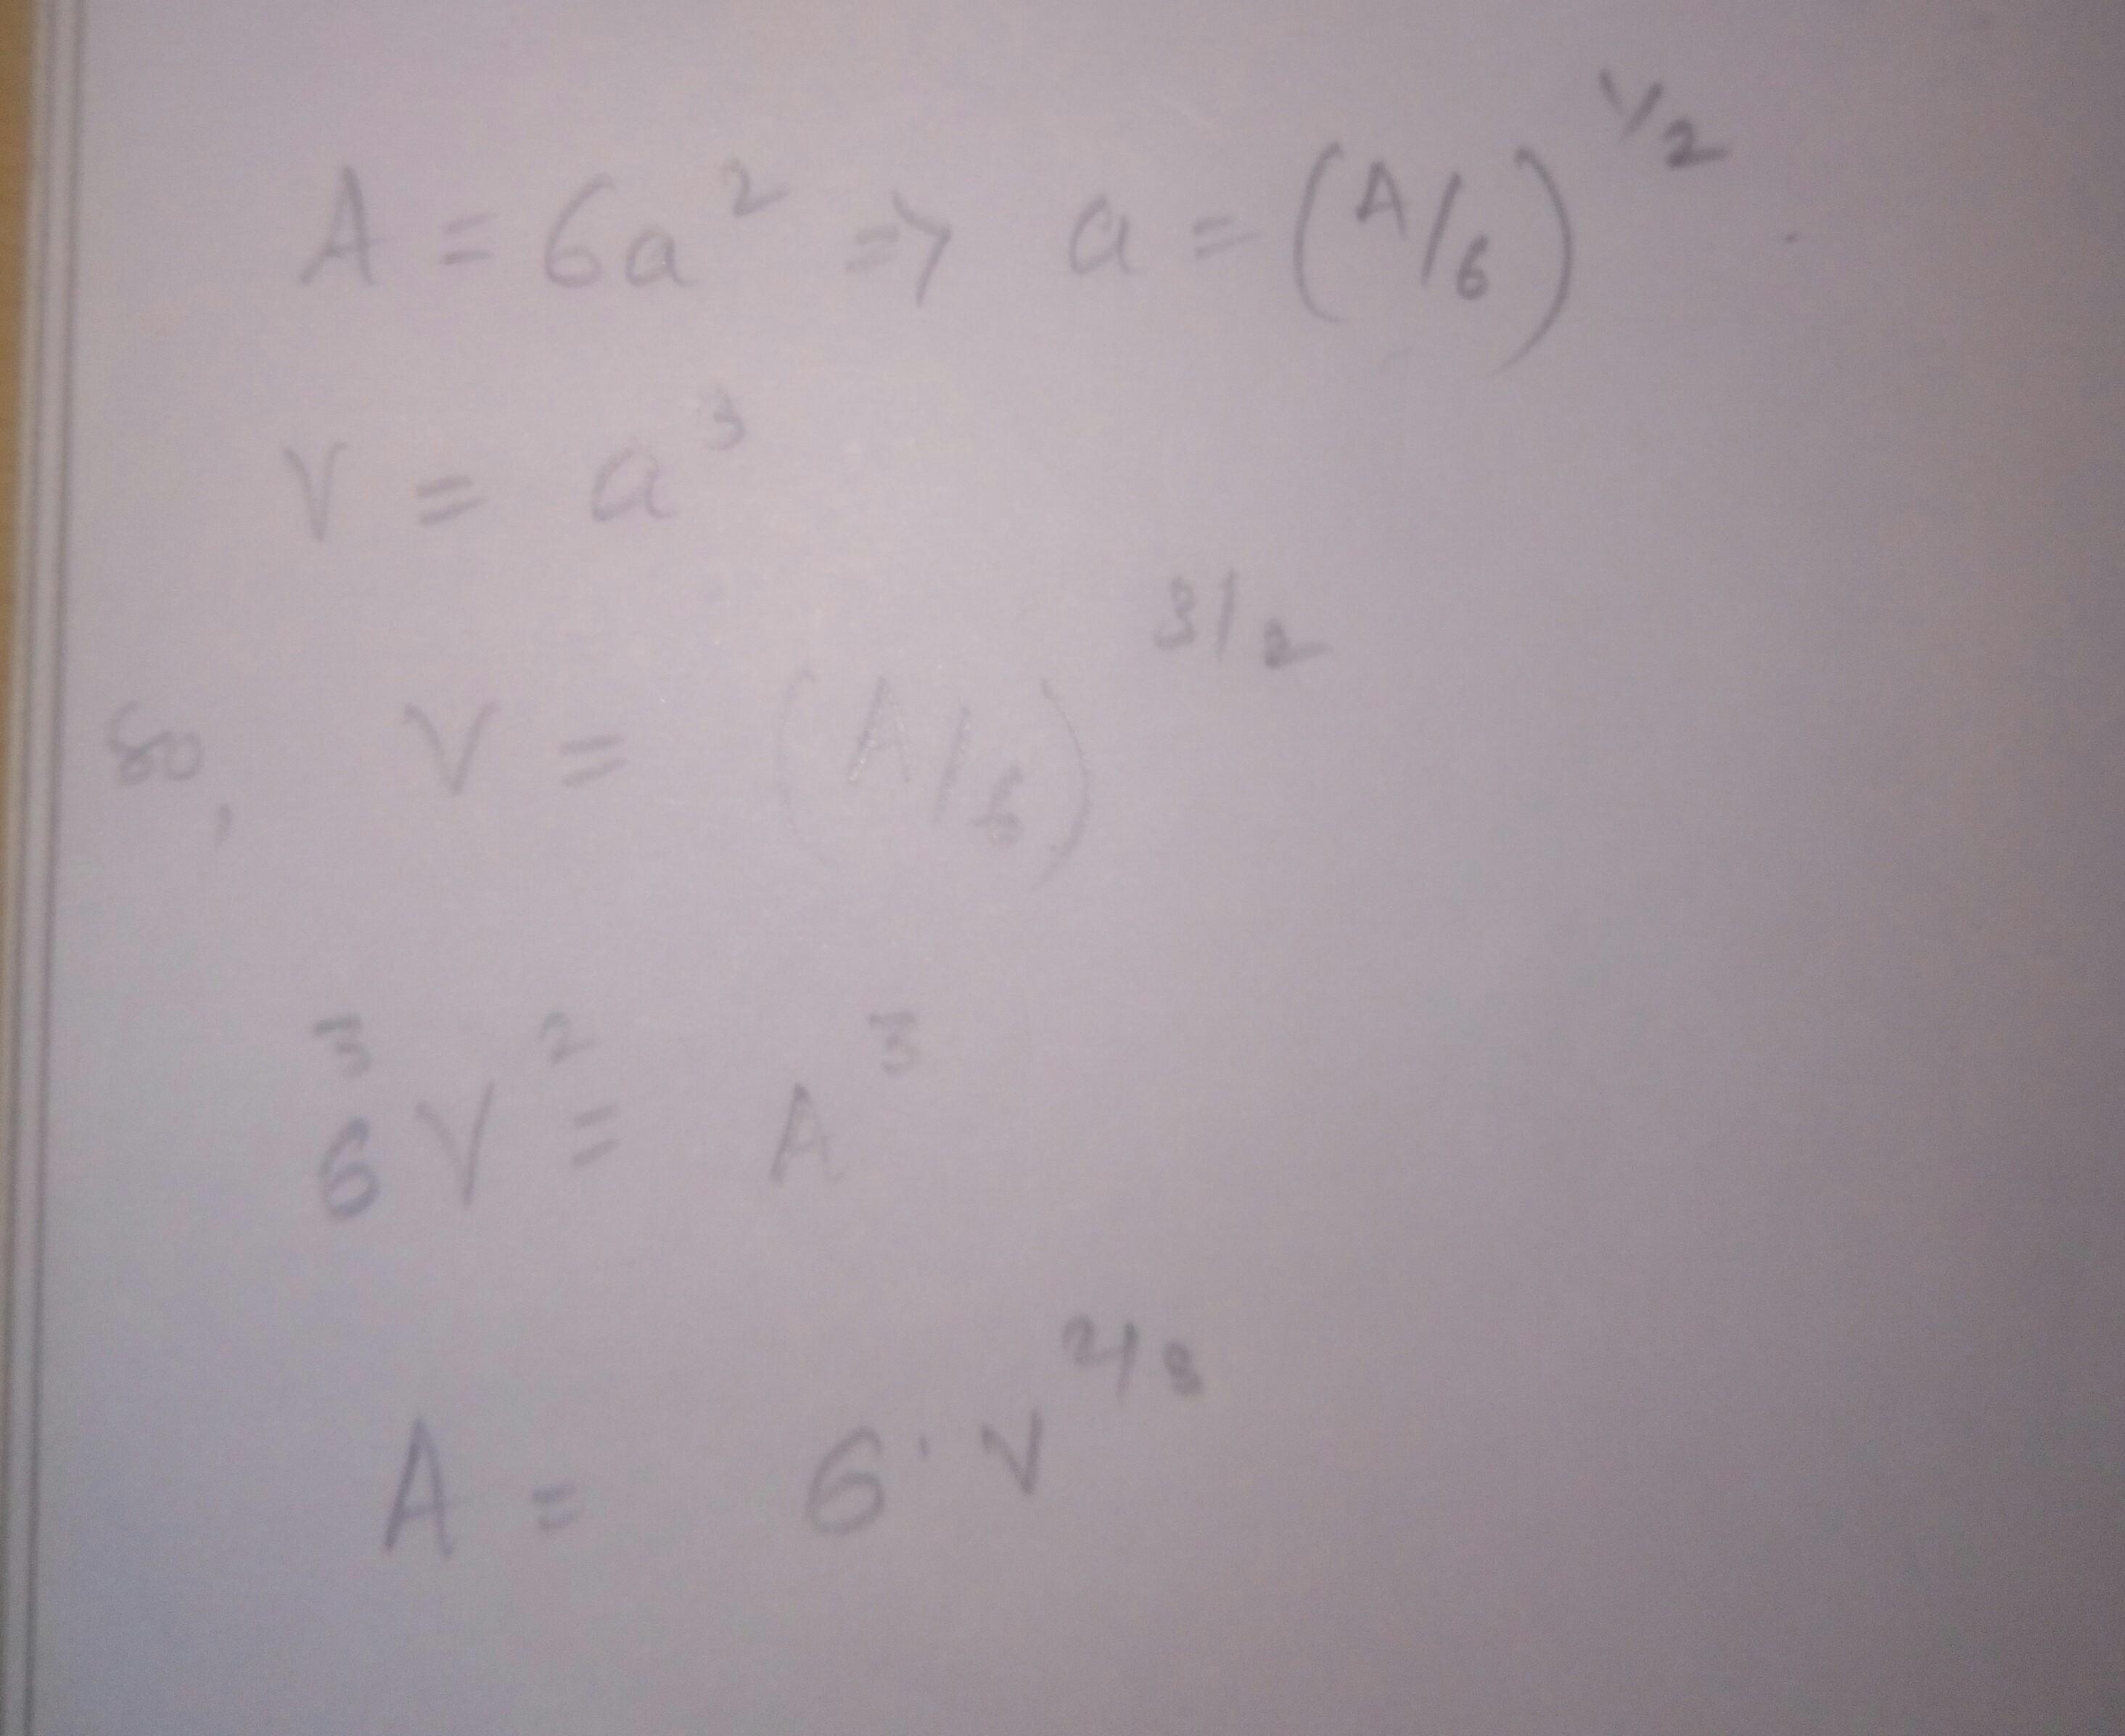 A = 6a² => a = (A/6)^1/2 .
V = a³
So, V = (A/6)^3/2
6³ V² = A³
A = 6 · V^2/3